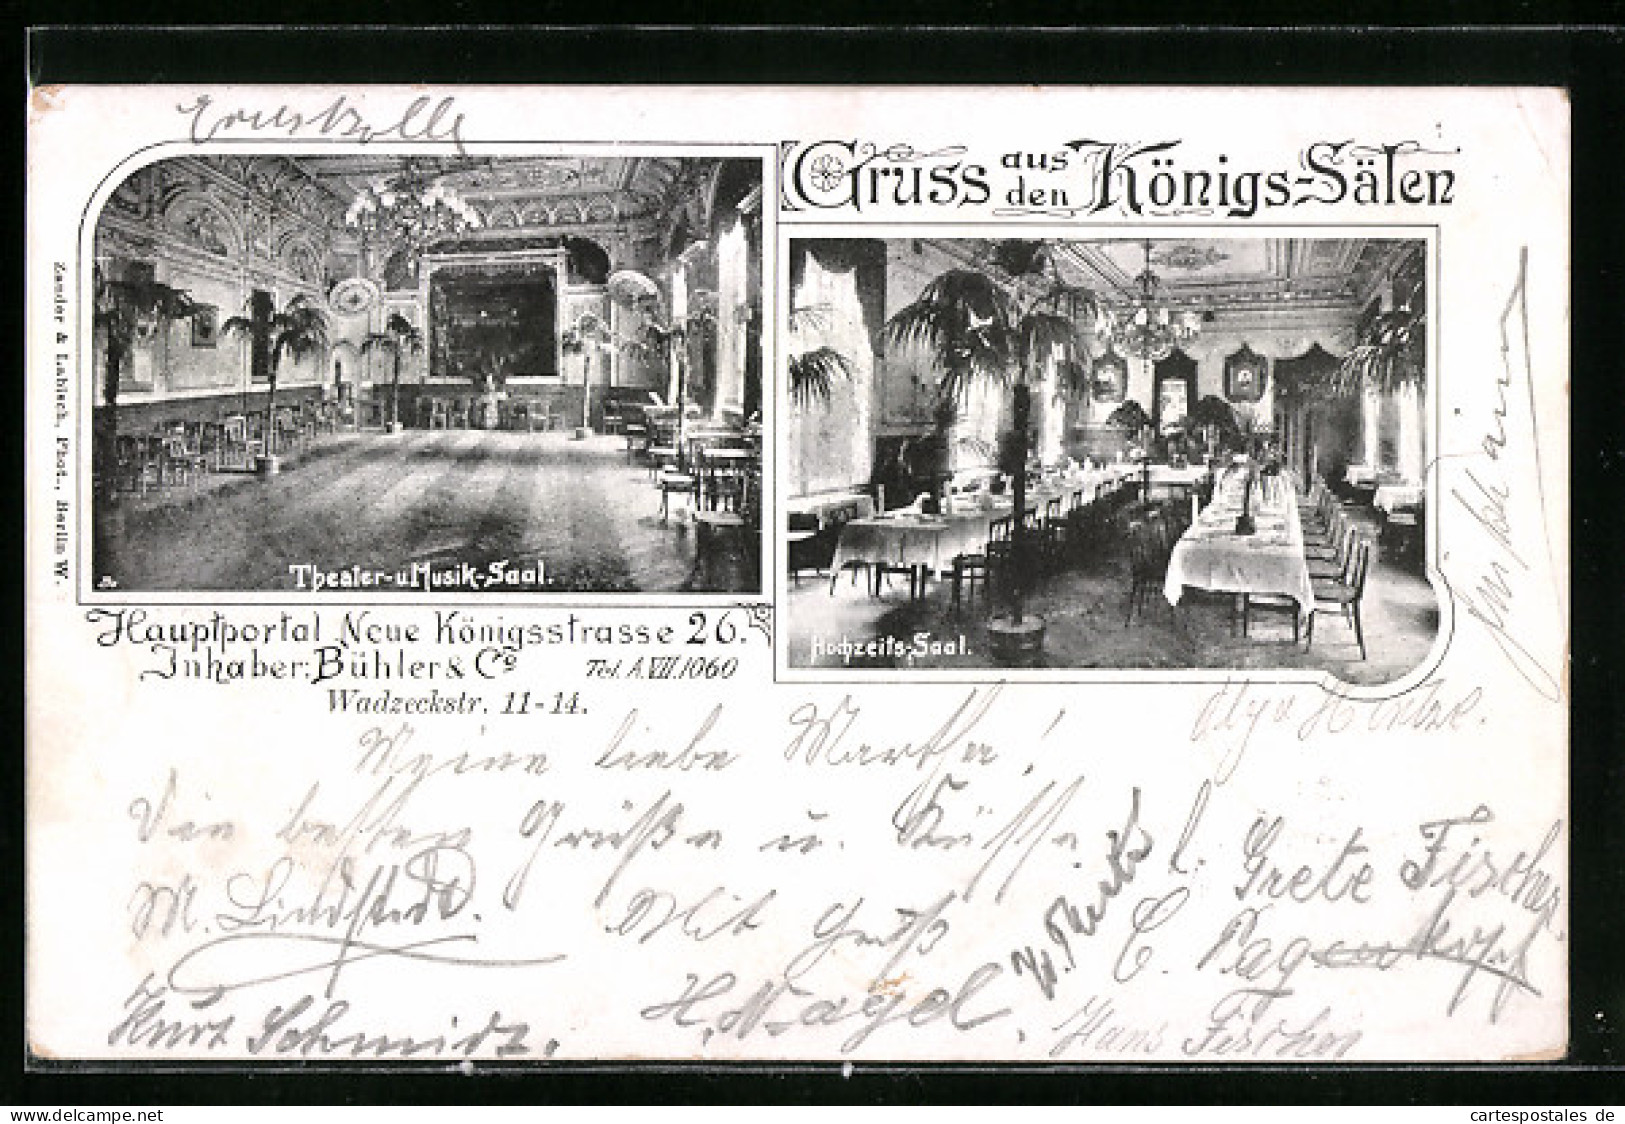 Gruss aus den Königs-Sälen
Zander & Labisch, Phot., Berlin W.
Theater-u Musik-Saal.
Hochzeits-Saal.
Hauptportal Neue Königsstrasse 26.
Inhaber: Bühler & Co
Tel. A. VII. 1060
Wadzeckstr. 11-14.
Meine liebe Martha!
Die besten Grüße u. Küsse
Grete Fischer
M. Lindstedt.
Mit Gruß
C. Pagenkopf
H. Nagel.
Kurt Schmidt.
Hans Fischer
cartespostales de